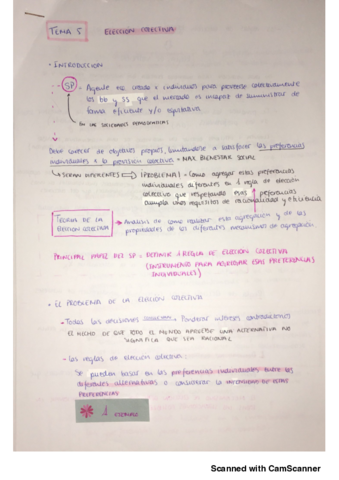 TEMA 5 ELECCIÓN COLECTIVA
· INTRODUCCIÓN
SP → Agente eco creado x individuos para proveerse colectivamente
los bb y ss que el mercado es incapaz de suministrar de
forma eficiente y/o equitativa
EN LAS SOCIEDADES DEMOCRÁTICAS
Debe carecer de objetivos propios, limitándose a satisfacer las preferencias
individuales x la provisión colectiva = MAX BIENESTAR SOCIAL
↳ SERÁN DIFERENTES → (PROBLEMA) = Cómo agregar estas preferencias
individuales diferentes en 1 regla de elección
colectiva que respetando esas preferencias
cumpla unos requisitos de racionalidad y eficiencia
TEORÍA DE LA ELECCIÓN COLECTIVA → Análisis de cómo realizar esta agregación y de las
propiedades de los diferentes mecanismos de agregación
PRINCIPAL PAPEL DEL SP = DEFINIR 1 REGLA DE ELECCIÓN COLECTIVA
(INSTRUMENTO PARA AGREGAR ESAS PREFERENCIAS
INDIVIDUALES)
· EL PROBLEMA DE LA ELECCIÓN COLECTIVA
- Todas las decisiones
EL HECHO DE QUE TODO EL MUNDO APOYE UNA ALTERNATIVA NO
SIGNIFICA QUE SEA RACIONAL
- Las reglas de elección colectiva:
Se pueden basar en las preferencias individuales entre las
diferentes alternativas o considerar la intensidad de estas
PREFERENCIAS
1 EJEMPLO
Scanned with CamScanner